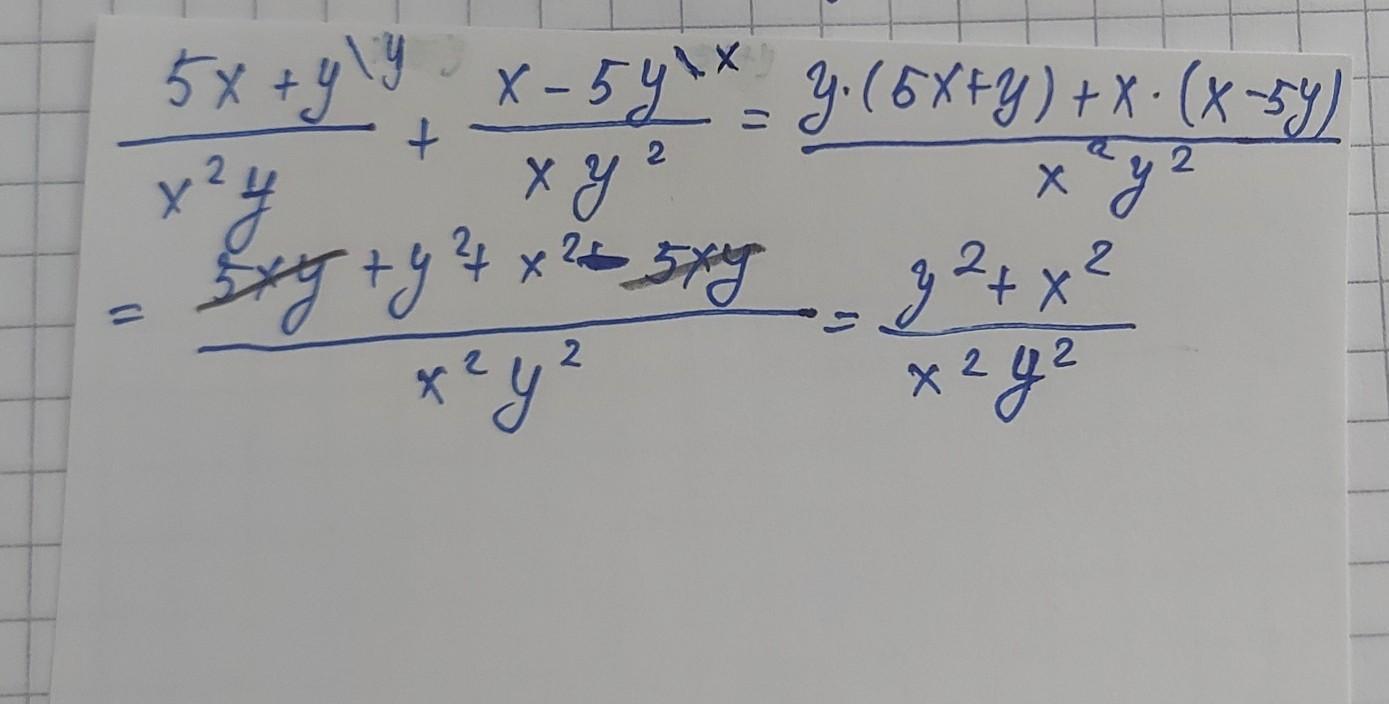 (5x + y)\y / x²y + (x - 5y)\x / xy² = (y·(5x+y) + x·(x-5y)) / x²y²
= (5xy + y² + x² - 5xy) / x²y² = (y² + x²) / x²y²